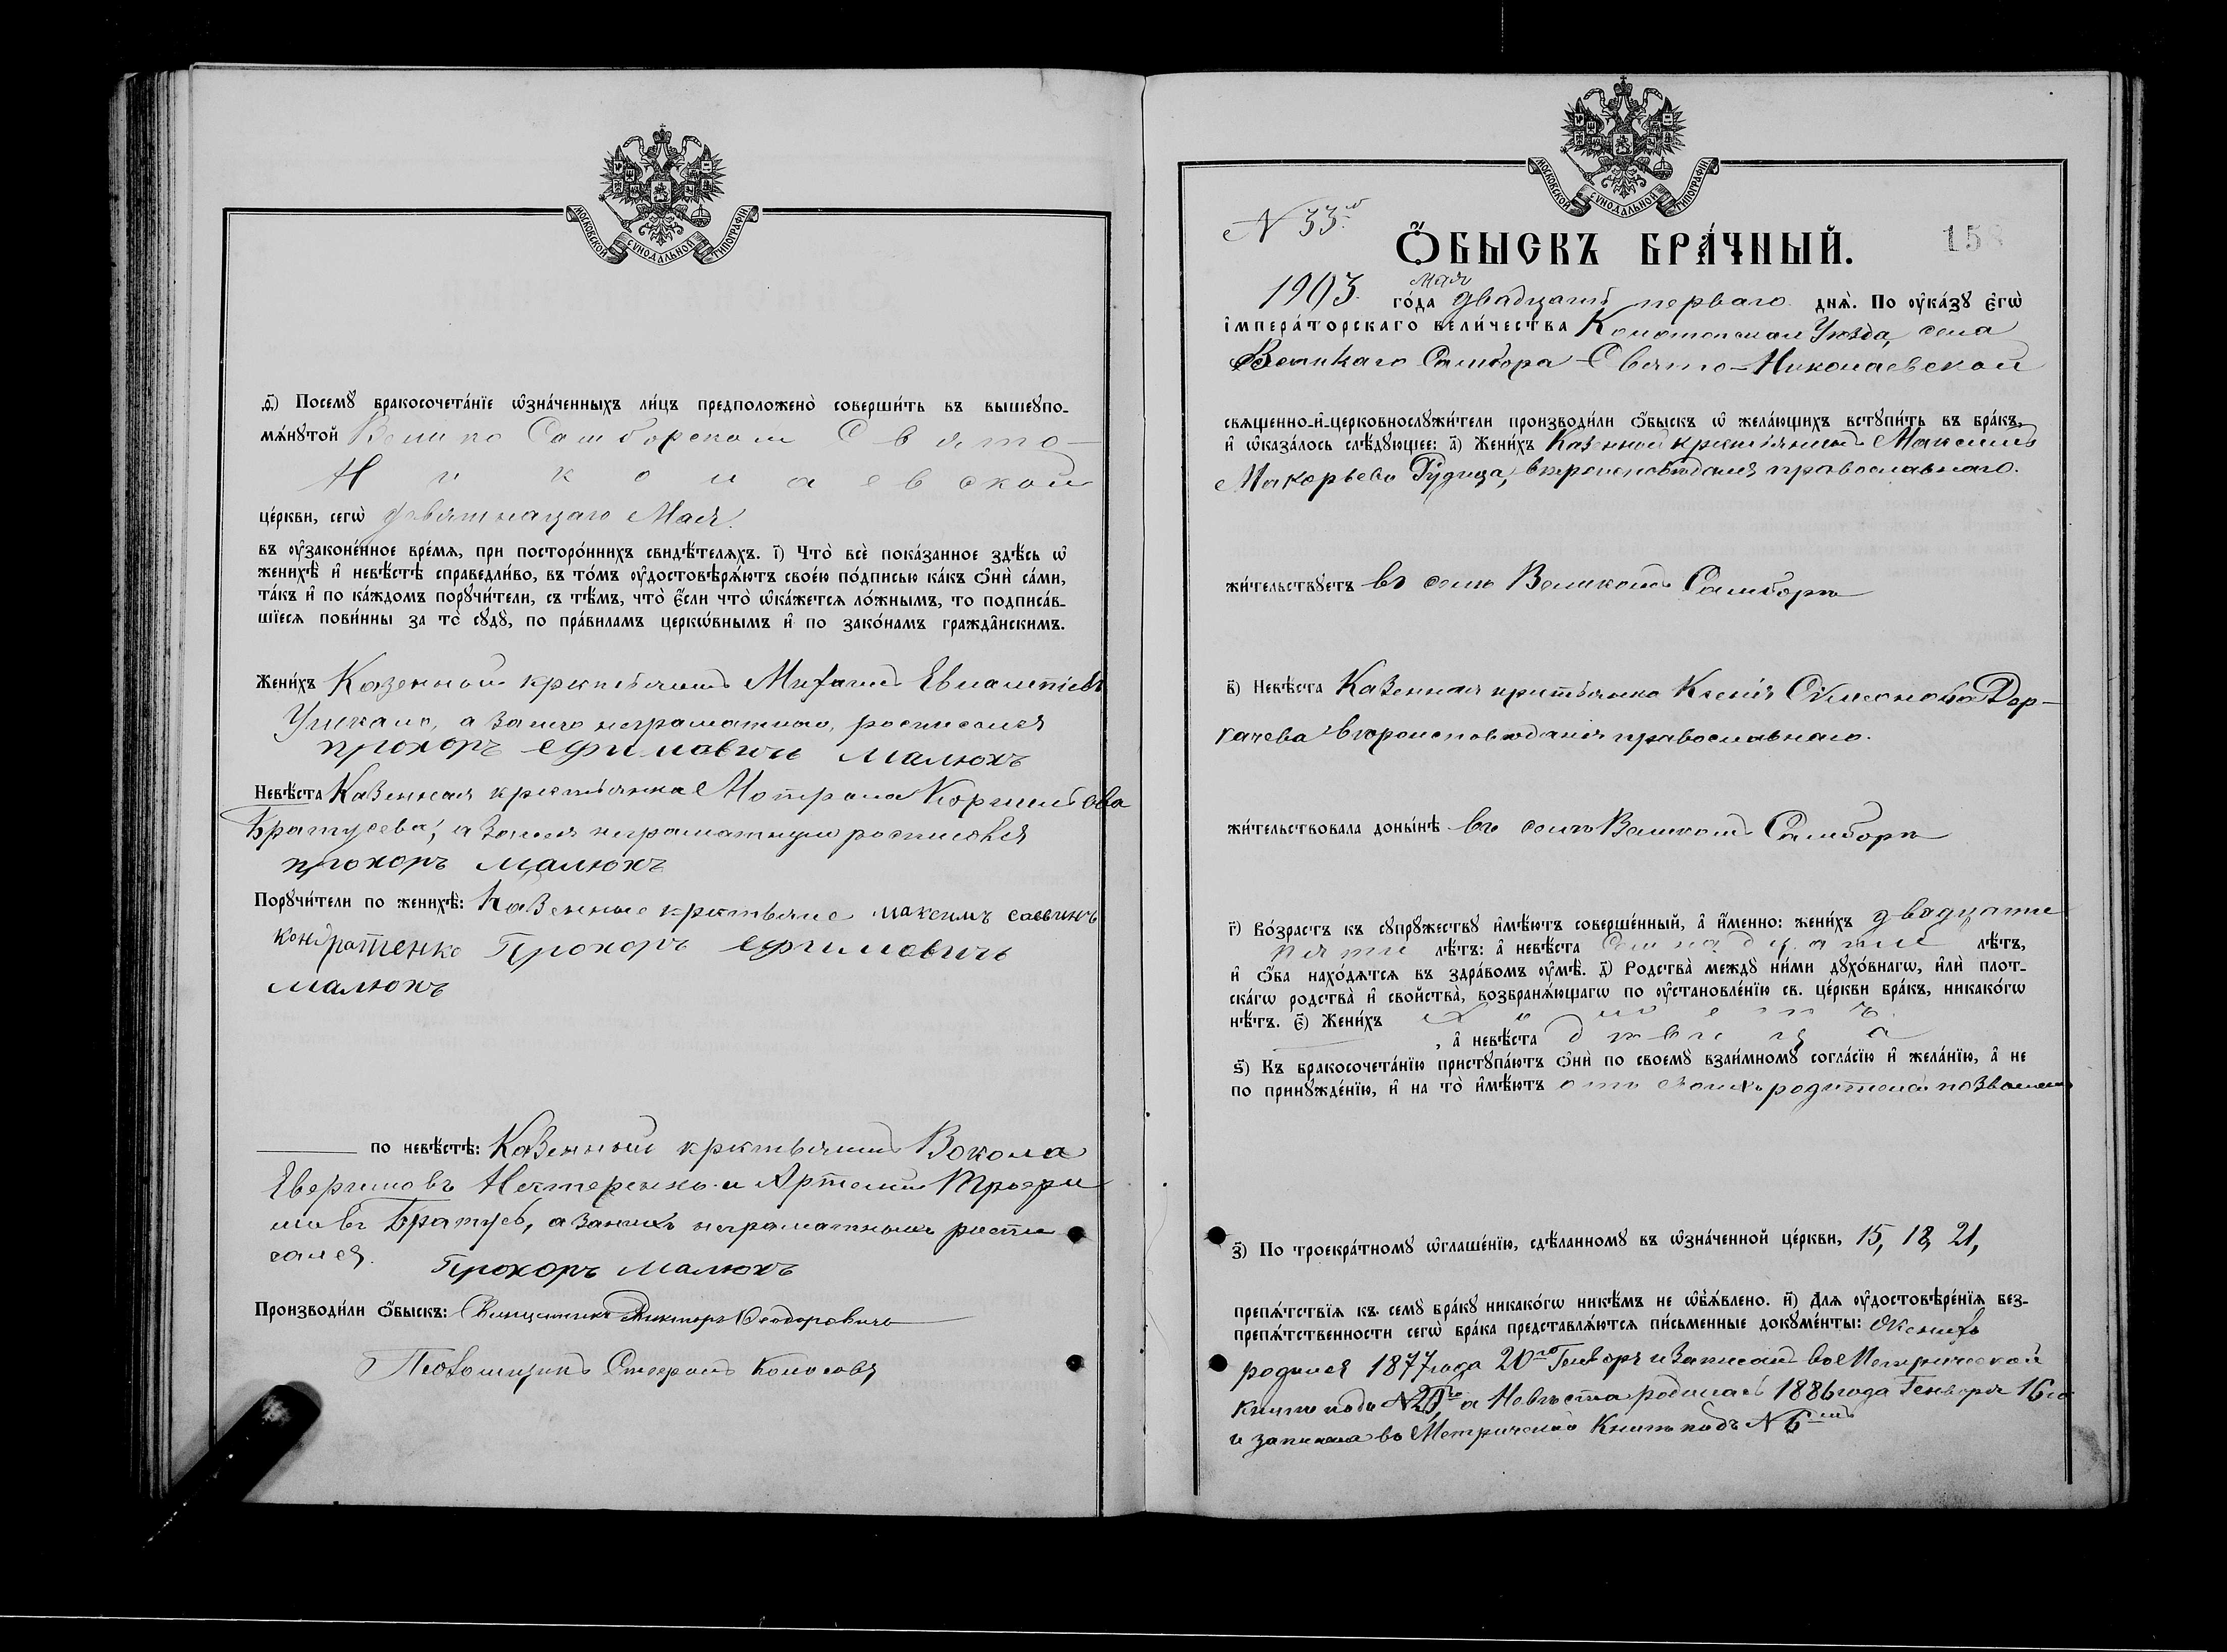 МОСКОВСКОЙ СУНОДАЛЬНОЙ ТИПОГРАФІИ
д҃і) Посемꙋ̀ бракосочета́нїе ѡ҆зна́ченныхъ ли́цъ предположено̀ соверши́ть въ вышеꙋпо-
мѧ́нꙋтой Велико Самборской Свято-
Николаевской
це́ркви, сегѡ̀ девятнацаго Мая.
въ ᲂу҆зако́ненное вре́мѧ, при посторо́ннихъ свидѣ́телѧхъ. і҃) Что̀ всѐ пока́занное здѣ́сь ѡ҆
женихѣ̀ и҆ невѣ́стѣ справедли́во, въ то́мъ ᲂу҆достовѣрѧ́ютъ свое́ю по́дписью ка́къ ѻ҆нѝ са́ми,
та́къ и҆ по ка́ждомъ порꙋчи́тели, съ тѣ́мъ, что̀ є҆́сли что̀ ѡ҆ка́жетсѧ ло́жнымъ, то подписа́в-
шїесѧ пови́нны за то̀ сꙋдꙋ̀, по пра́виламъ церко́внымъ и҆ по зако́намъ гражда́нскимъ.
Жени́хъ Казенной крестьянинъ
а за него неграматнаго, росписался
прохоръ ефимовичь малюхъ
Невѣ́ста Казенная крестьянка Мотрона
Братусева, а за нея неграматную росписався
прохоръ малюхъ
Порꙋчи́тели по женихѣ̀: Казенные крестьяне максимъ саввичь
кондратенко Прохоръ ефимовичь
малюхъ
по невѣ́стѣ: Казенный крестьянинъ
Нестеренко и Артемий
Братусь, а за нихъ неграматныхъ роспи
сался.
Прохоръ малюхъ
Производи́ли ѻ҆́быскъ: Священникъ Викторъ Ѳеодоровичь
Псаломщикъ Стефанъ
МОСКОВСКОЙ СУНОДАЛЬНОЙ ТИПОГРАФІИ
N 33й
Ѻ҆́БЫСКЪ БРА́ЧНЫЙ.
мая
1903 го́да двадцать перваго днѧ̀. По ᲂу҆ка́зꙋ є҆гѡ̀
і҆мпера́торскаго вели́чества Конотопскаго Уѣзда, села
Великаго Самбора Свято-Николаевской
свѧщенно-и҆-церковнослꙋжи́тели производи́ли ѻ҆́быскъ ѡ҆ жела́ющихъ встꙋпи́ть въ бра́къ,
и҆ ѡ҆каза́лось слѣ́дꙋющее: а҃) Жени́хъ Казенной крестьянинъ Максимъ
Макарьевъ Гудица, вѣроисповѣданія православнаго.
жи́тельствꙋетъ въ селѣ Великомъ Самборѣ
в҃) Невѣ́ста Казенная крестьянка Ксенія Симеонова Дор-
качева вѣроисповѣданія православнаго.
жи́тельствовала доны́нѣ въ селѣ Великомъ Самборѣ
г҃) Во́зрастъ къ сꙋпрꙋ́жествꙋ и҆мѣ́ютъ соверше́нный, а҆ и҆́менно: жени́хъ двадцать
пять лѣ́тъ: а҆ невѣ́ста семнадцать лѣ́тъ,
и҆ ѻ҆́ба нахо́дѧтсѧ въ здра́вомъ ᲂу҆мѣ̀. д҃) Родства̀ междꙋ̀ ни́ми дꙋхо́внагѡ, и҆лѝ плот-
ска́гѡ родства̀ и҆ сво́йства, возбранѧ́ющагѡ по ᲂу҆становле́нїю св. це́ркви бра́къ, никако́гѡ
нѣ́тъ. є҃) Жени́хъ
, а҆ невѣ́ста дѣвица
ѕ҃) Къ бракосочета́нїю пристꙋпа́ютъ ѻ҆нѝ по своемꙋ̀ взаи́мномꙋ согла́сїю и҆ жела́нїю, а҆ не
по принꙋжде́нїю, и҆ на то̀ и҆мѣ́ютъ отъ своихъ родителей позволеніе
з҃) По троекра́тномꙋ ѡ҆глаше́нїю, сдѣ́ланномꙋ въ ѡ҆зна́ченной це́ркви, 15, 18, 21,
препѧ́тствїѧ къ семꙋ̀ бра́кꙋ никако́гѡ никѣ́мъ не ѡ҆б̾ѧ́влено. и҃) Длѧ ᲂу҆достовѣре́нїѧ без-
препѧ́тственности сегѡ̀ бра́ка представлѧ́ютсѧ пи́сьменные докꙋме́нты: Женихъ
родился 1877 года 20го Генворя и записанъ во Метрической
книгѣ подъ а Невѣста родилась 1886 года Генворя 16го
и записана во Метрической Книгѣ подъ N 6мъ